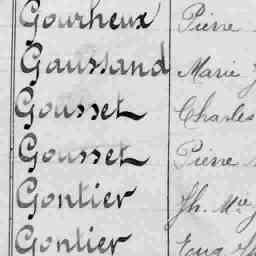 Gourheux Pierre
Gaussand Marie J
Gousset Charles
Gousset Pierre
Gontier Jh. Mie J
Gontier Eug